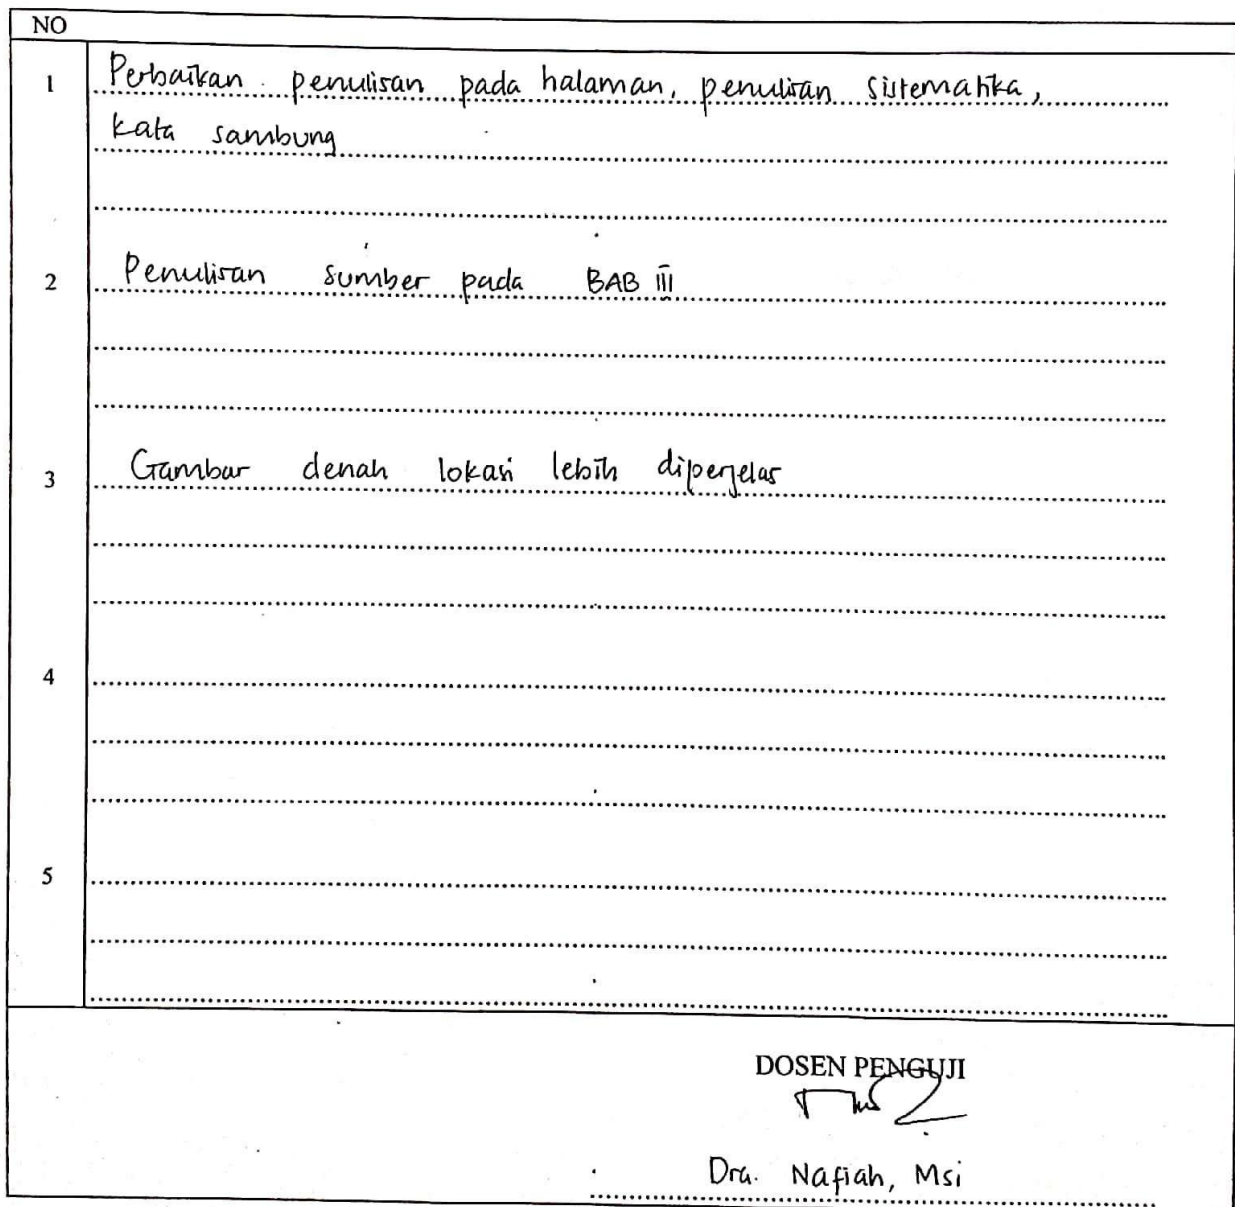 NO
1 Perbaikan penulisan pada halaman, penulisan sistematika,
kata sambung
2 Penulisan sumber pada BAB III
3 Gambar denah lokasi lebih diperjelas
4
5
DOSEN PENGUJI
Dra. Nafiah, Msi